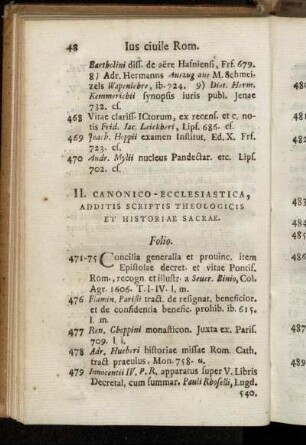 48 Ius ciuile Rom.
Bartholini diss. de aëre Hafniensi, Frf. 679.
8) Adr. Hermanns Auszug aus M. Schmei-
zels Wapenlehre, ib. 724. 9) Diet. Herm.
Kemmerichii synopsis iuris publ. Jenae
732. cf.
468 Vitae clariss. ICtorum, ex recens. et c. no-
tis Frid. Iac. Leickheri, Lips. 686. cf.
469 Joach. Hoppii examen Institut. Ed. X. Frf.
723. cf.
470 Andr. Mylii nucleus Pandectar. etc. Lips.
702. cf.
II. CANONICO-ECCLESIASTICA,
ADDITIS SCRIPTIS THEOLOGICIS
ET HISTORIAE SACRAE.
Folio.
471-75 Concilia generalia et prouinc. item
Epistolae decret. et vitae Pontif.
Rom., recogn. et illustr. a Seuer. Binio, Col.
Agr. 1606. T. I-IV. l. m.
476 Flamin. Parisii tract. de resignat. beneficior.
et de confidentia benefic. prohib. ib. 615.
l. m.
477 Ren. Choppini monasticon. Juxta ex. Paris.
709. l. i.
478 Adr. Hueberi historiae missae Rom. Cath.
tract. praeuius, Mon. 758. u.
479 Innocentii IV. P. R. apparatus super V. Libris
Decretal. cum summar. Pauli Rhoselli, Lugd.
540.